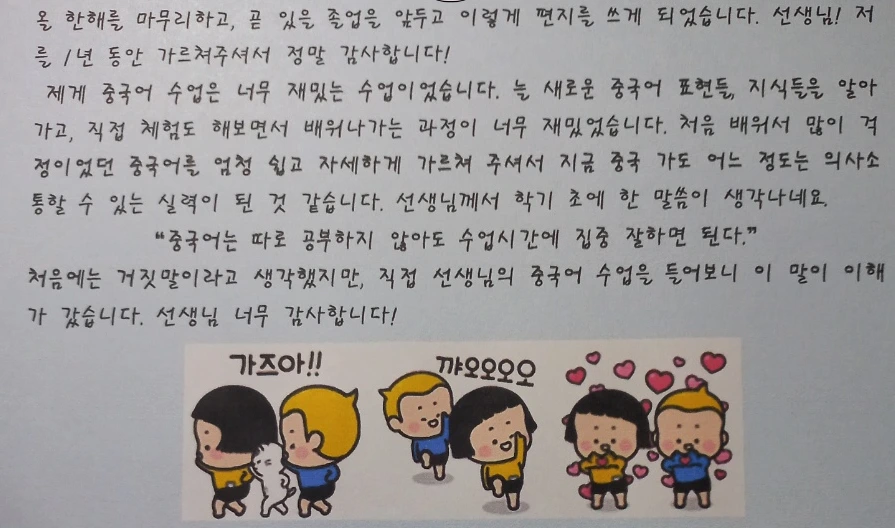 올 한해를 마무리하고, 곧 있을 졸업을 앞두고 이렇게 편지를 쓰게 되었습니다. 선생님! 저
를 1년 동안 가르쳐주셔서 정말 감사합니다!
제게 중국어 수업은 너무 재밌는 수업이었습니다. 늘 새로운 중국어 표현들, 지식들을 알아
가고, 직접 체험도 해보면서 배워나가는 과정이 너무 재밌었습니다. 처음 배워서 많이 걱
정이었던 중국어를 엄청 쉽고 자세하게 가르쳐 주셔서 지금 중국 가도 어느 정도는 의사소
통할 수 있는 실력이 된 것 같습니다. 선생님께서 학기 초에 한 말씀이 생각나네요.
"중국어는 따로 공부하지 않아도 수업시간에 집중 잘하면 된다."
처음에는 거짓말이라고 생각했지만, 직접 선생님의 중국어 수업을 들어보니 이 말이 이해
가 갔습니다. 선생님 너무 감사합니다!
가즈아!!
꺄오오오오